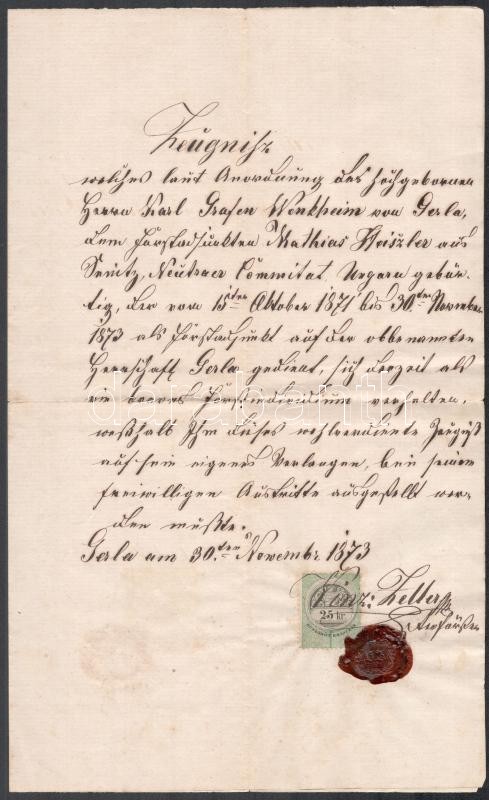 Zeugniß
welches laut Anordnung des Hochgebornen
Herrn Karl Grafen Wenkheim von Gerla,
dem Forstadjunkten Mathias Heiszler aus
Senitz, Neutraer Commitat Ungarn gebür-
tig, der vom 15ten Oktober 1871 bis 30ten November
1873 als Forstadjunkt auf der obbenannten
Herrschaft Gerla gedient, sich derzeit als
ein braves Forstindividium verhalten,
weßhalb Ihm dieses wohlverdiente Zeugniß
auf sein eigenes Verlangen, bei seinem
freiwilligen Austritte ausgestellt wor-
den mußte.
Gerla am 30ten Novembr 1873
Zeller
25 kr.
darabanth